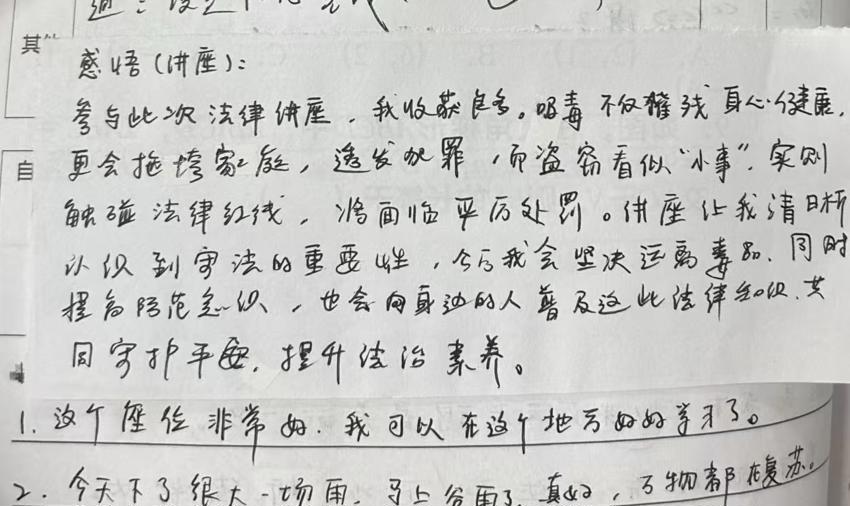 其他
感悟(讲座):
参与此次法律讲座,我收获良多。吸毒不仅摧残身心健康,
更会拖垮家庭,诱发犯罪,而盗窃看似“小事”,实则
触碰法律红线,将面临严厉处罚。讲座让我清晰
认识到守法的重要性,今后我会坚决远离毒品、同时
提高防范意识,也会向身边的人普及这些法律知识,共
同守护平安,提升法治素养。
自
1. 这个座位非常好,我可以在这个地方好好学习了。
2. 今天下了很大一场雨,马上谷雨了,真好,万物都在复苏。